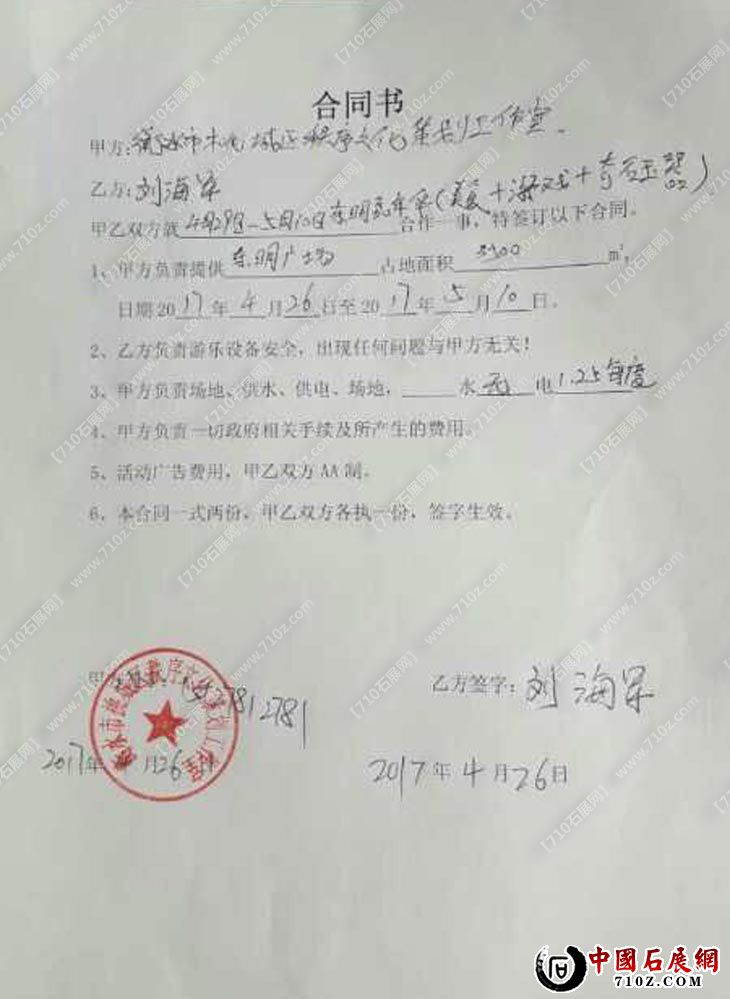 合同书
甲方:衡水市桃城区秩序文化策划工作室.
乙方:刘海军
甲乙双方就4月29日-5月10日东明嘉年华(美食+游戏+奇石玉器)合作一事,特签订以下合同。
1、甲方负责提供东明广场占地面积3500m²,
日期2017年4月26日至2017年5月10日。
2、乙方负责游乐设备安全,出现任何问题与甲方无关!
3、甲方负责场地、供水、供电、场地,水电1.25每度
4、甲方负责一切政府相关手续及所产生的费用。
5、活动广告费用,甲乙双方AA制。
6、本合同一式两份,甲乙双方各执一份,签字生效。
甲
7812781
衡水市桃城区秩序文化策划工作室
2017年 月26
乙方签字:刘海军
2017年4月26日
中國石展網
710Z.COM